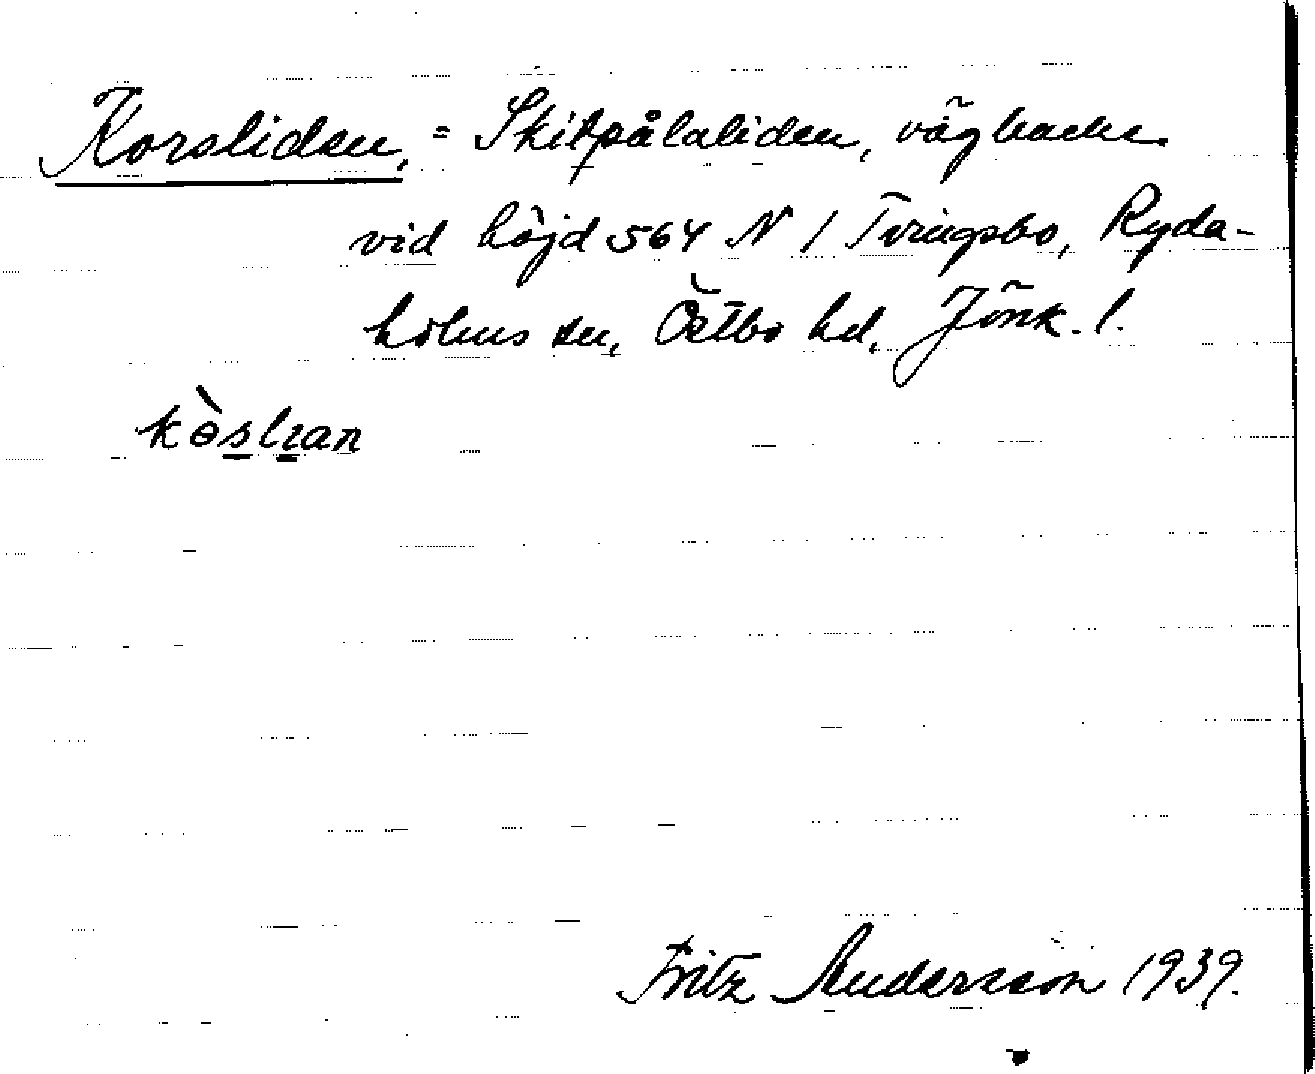 Korsliden, = Skitpålaliden, vägbacke
vid höjd 564 N / Tvingsbo, Ryda-
holms sn, Östbo hd, Jönk. l.
Fritz Andersson 1939.